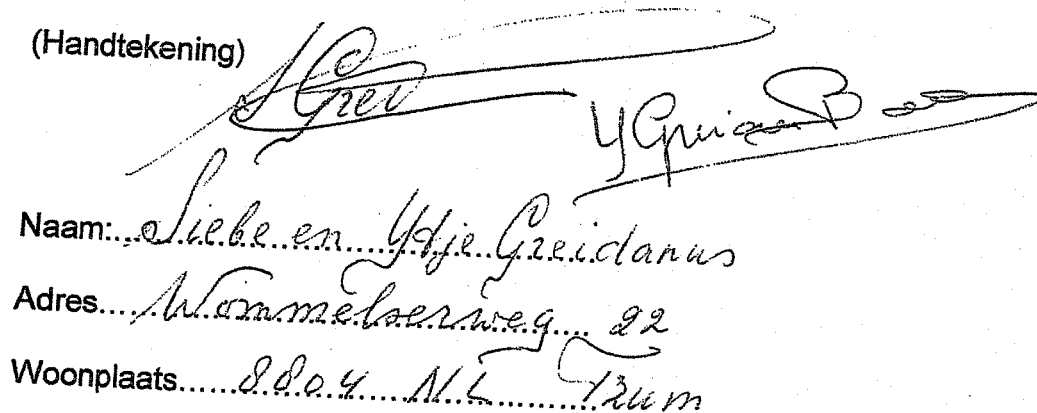 (Handtekening)
S Grei
Naam: Siebe en Ydje Greidanus
Adres Wommelserweg 22
Woonplaats 8804 NL Tzum